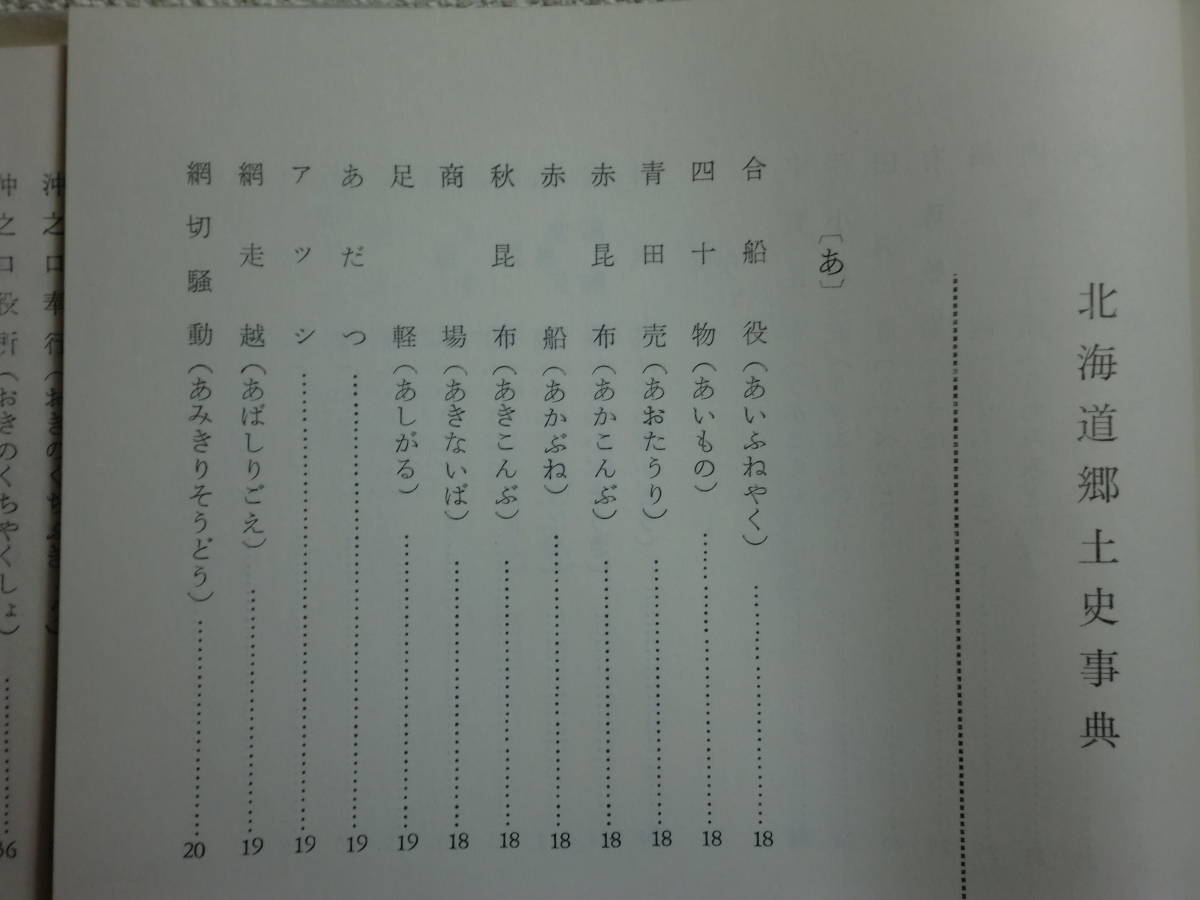 北海道郷土史事典
〔あ〕
合船役（あいふねやく）……………………18
四十物（あいもの）……………………18
青田売（あおたうり）……………………18
赤昆布（あかこんぶ）……………………18
赤船（あかぶね）……………………18
秋昆布（あきこんぶ）……………………18
商場（あきないば）……………………18
足軽（あしがる）……………………19
あだつ……………………19
アツシ……………………19
網走越（あばしりごえ）……………………19
網切騒動（あみきりそうどう）……………………20
沖之口奉行
沖之口役所（おきのくちやくしょ）……………………36